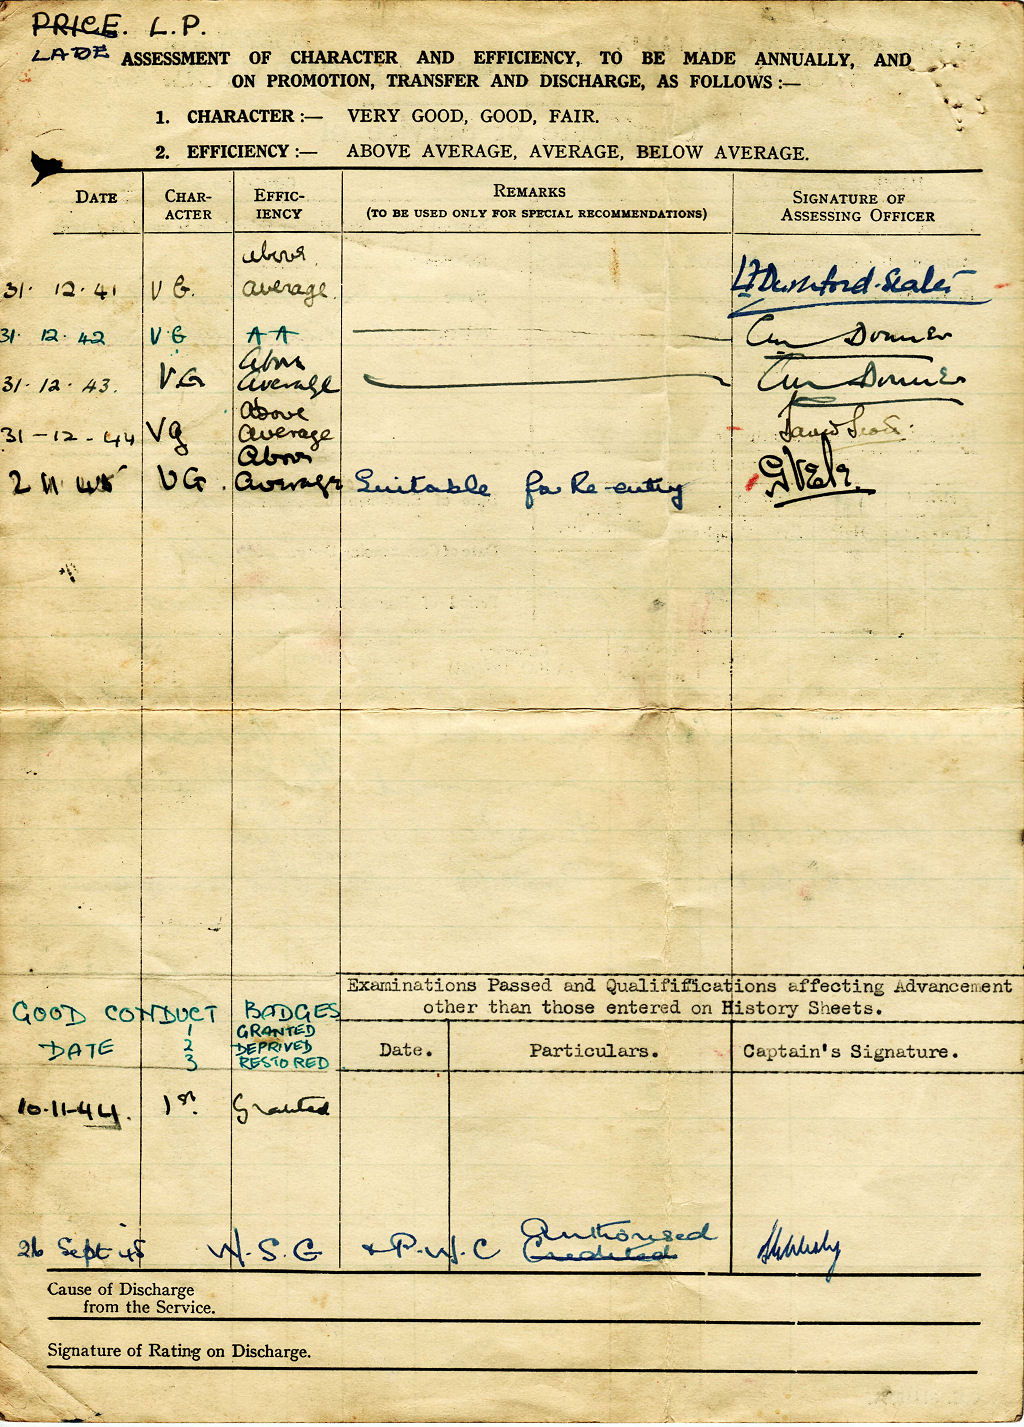 PRICE. L.P.
LADE
ASSESSMENT OF CHARACTER AND EFFICIENCY, TO BE MADE ANNUALLY, AND
ON PROMOTION, TRANSFER AND DISCHARGE, AS FOLLOWS :—
1. CHARACTER :— VERY GOOD, GOOD, FAIR.
2. EFFICIENCY :— ABOVE AVERAGE, AVERAGE, BELOW AVERAGE.
DATE CHAR- EFFIC- REMARKS SIGNATURE OF
ACTER IENCY (TO BE USED ONLY FOR SPECIAL RECOMMENDATIONS) ASSESSING OFFICER
above
31. 12.41 V G. average.
31. 12. 42 V.G A A
Above
31.12.43. V.G average
Above
31-12-44 VG average
Above
2 11 45 VG. average Suitable for Re-entry
Examinations Passed and Qualififications affecting Advancement
other than those entered on History Sheets.
GOOD CONDUCT BADGES
1 GRANTED
DATE 2 DEPRIVED
3 RESTORED
Date. Particulars. Captain's Signature.
10.11-44. 1st. Granted
Authorised
26 Sept 45 W.S.G & P.W.C Credited
Cause of Discharge
from the Service.
Signature of Rating on Discharge.